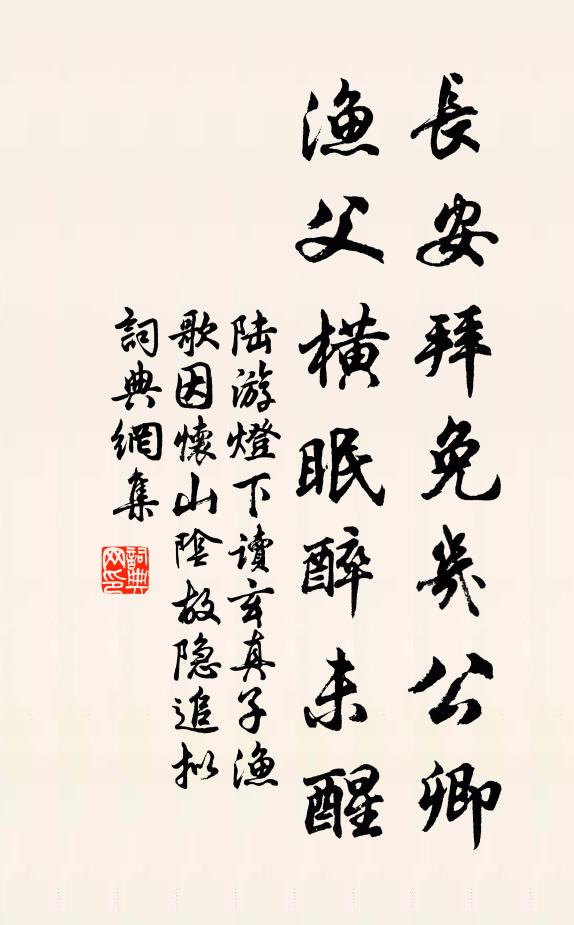 長安拜免幾公卿
漁父橫眠醉未醒
陆游燈下讀玄真子漁
歌因懷山陰故隐追拟
詞典網集
詞典
网印